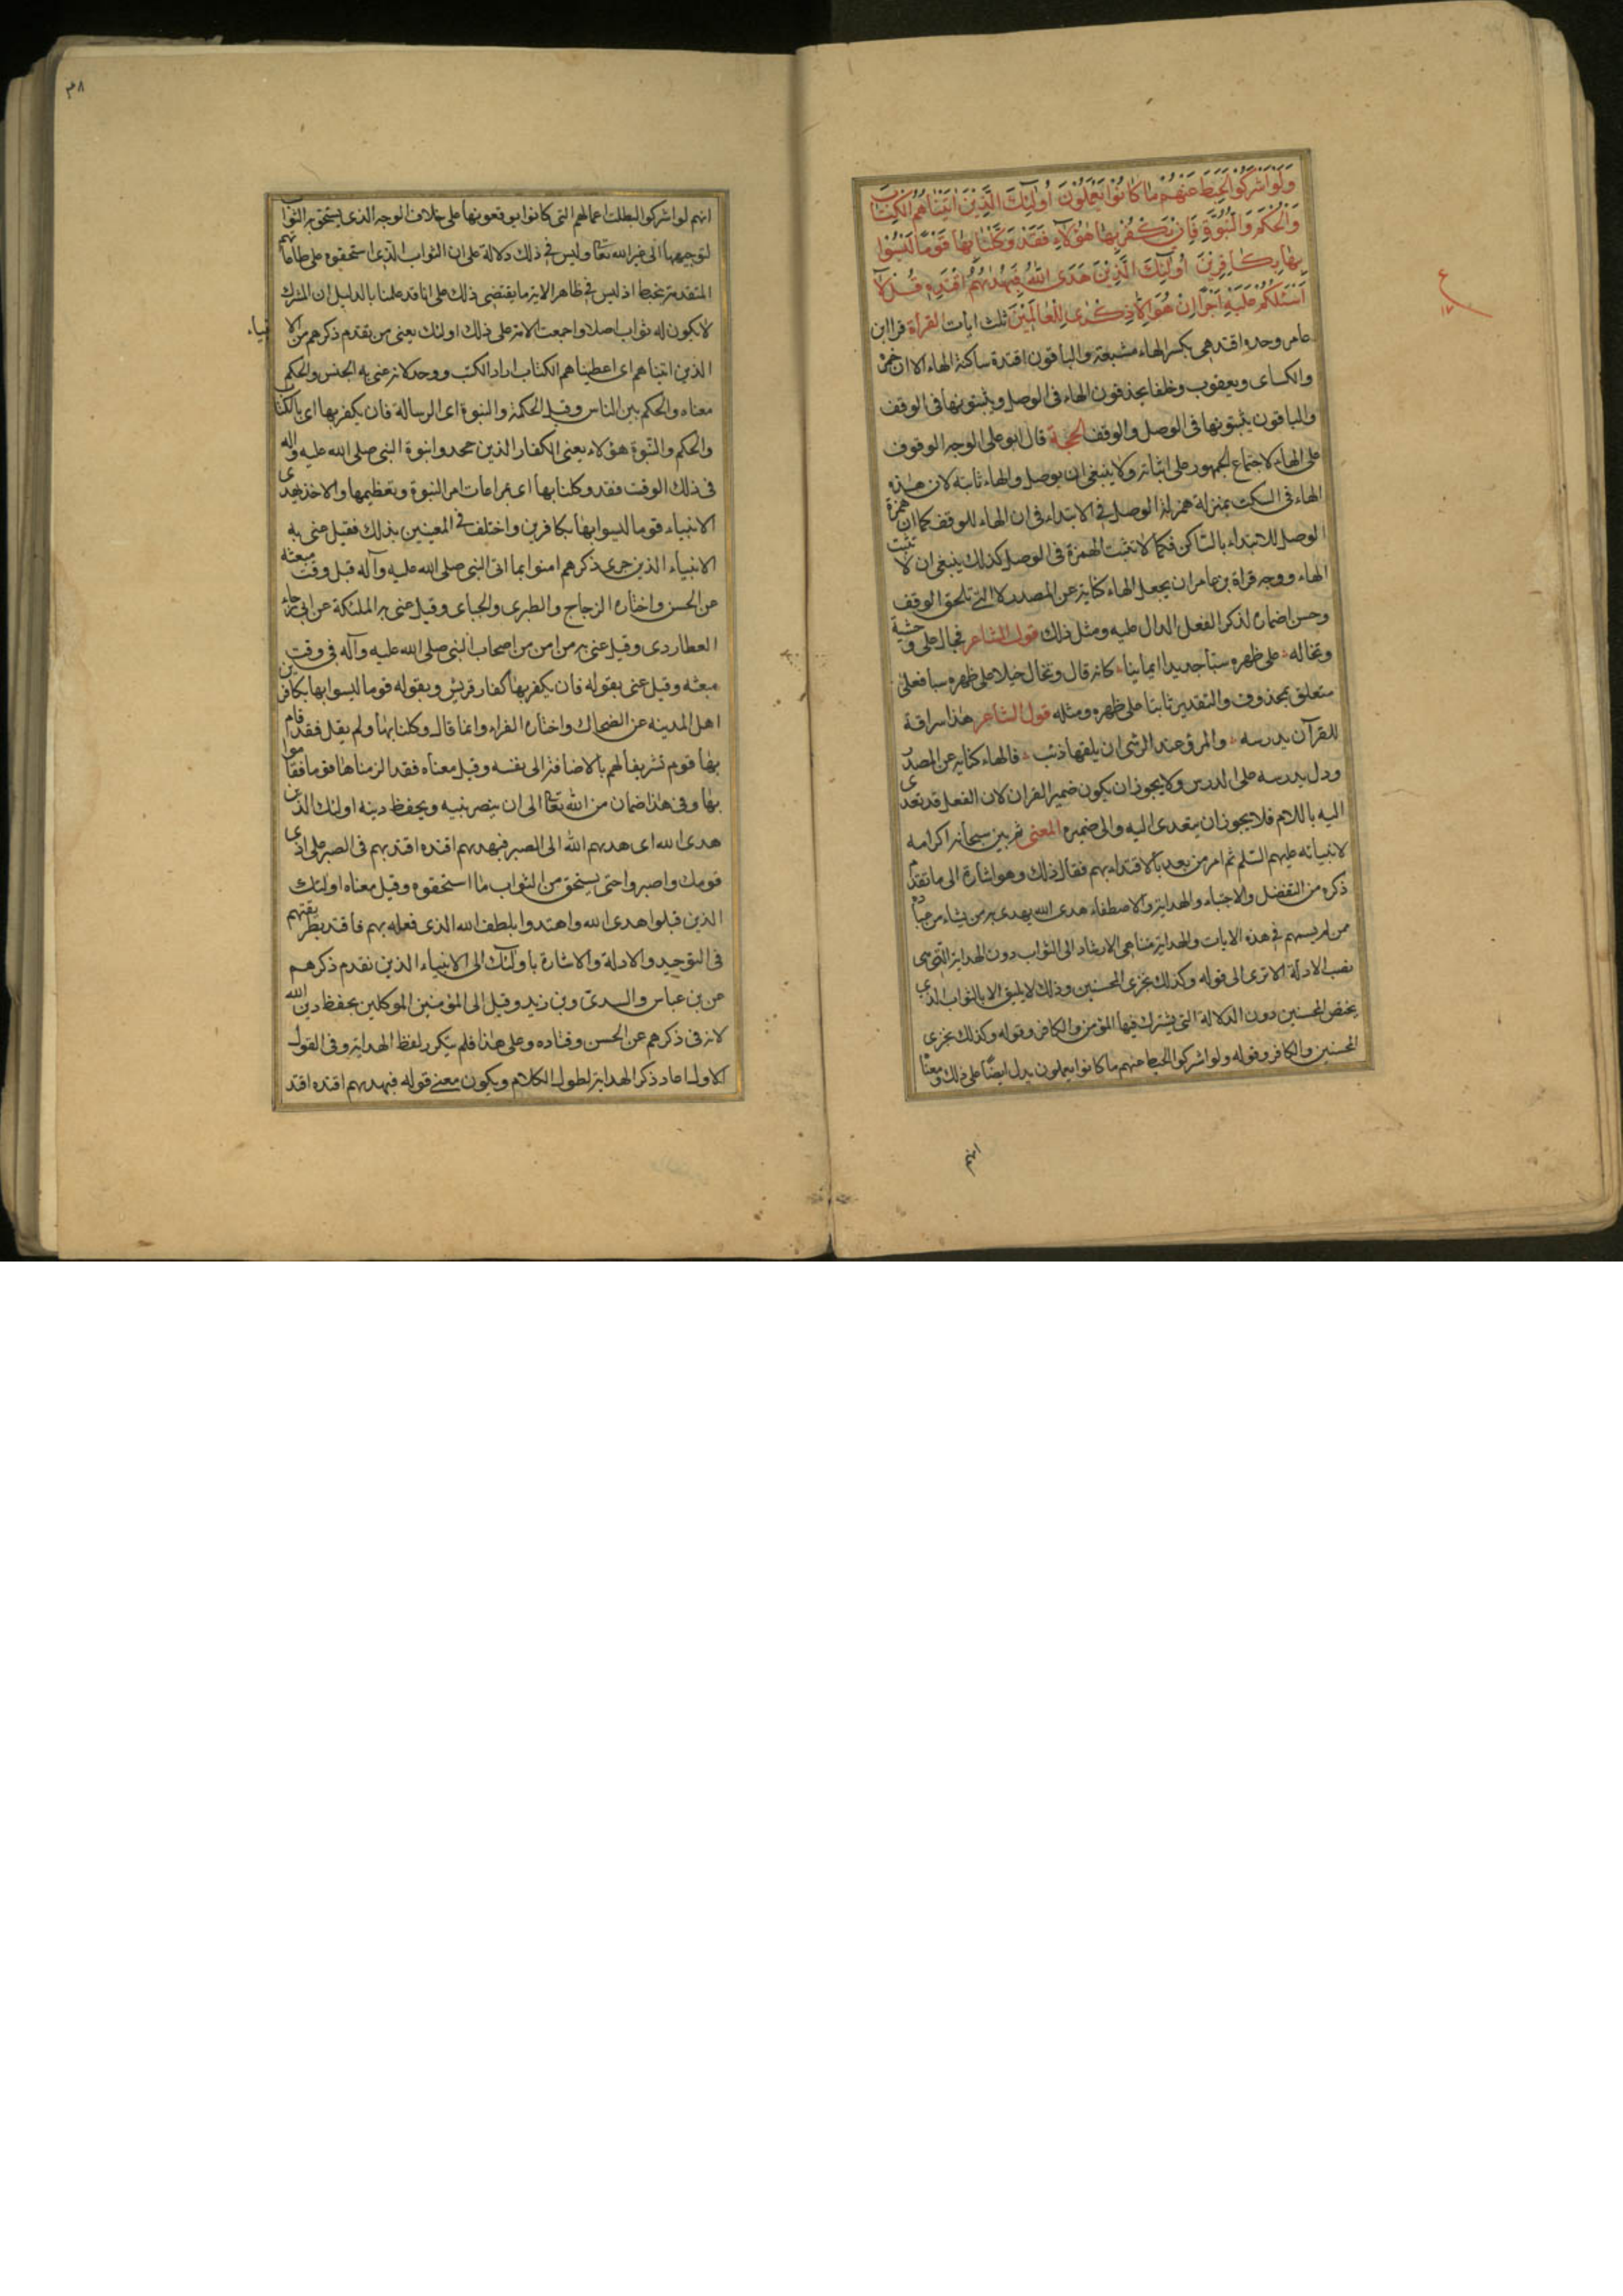 وَلَوْ اَشْرَكُوا لَحَبِطَ عَنْهُمْ مٰا كٰانُوا يَعْمَلُونَ اُولٰئِكَ الَّذِينَ اٰتَيْنٰاهُمُ الْكِتٰابَ
وَالْحُكْمَ وَالنُّبُوَّةَ فَاِنْ يَكْفُرْ بِهٰا هٰؤُلاٰءِ فَقَدْ وَكَّلْنٰا بِهٰا قَوْمًا لَيْسُوا
بِهٰا بِكٰافِرِينَ اُولٰئِكَ الَّذِينَ هَدَى اللّٰهُ فَبِهُدٰيهُمُ اقْتَدِهِ قُلْ لاٰ
اَسْئَلُكُمْ عَلَيْهِ اَجْرًا اِنْ هُوَ اِلاّٰ ذِكْرٰى لِلْعٰالَمِينَ ثلث ايات القرأة قرا ابن
عامر وحده اقتدهى بكسر الهاء مشبعة والباقون اقتده ساكنة الهاء الا ان حمزة
والكسائى ويعقوب وخلفا يحذفون الهاء فى الوصل ويثبتونها فى الوقف
والباقون يثبتونها فى الوصل والوقف الحجة قال ابو على الوجه الوقوف
على الهاء لاجتماع الجمهور على اثباته ولا ينبغى ان يوصل والهاء ثابتة لان هذه
الهاء فى السكت بمنزلة همزة الوصل فى الابتداء فى ان الهاء للوقف كما ان همزة
الوصل للابتداء بالساكن فكما لا تثبت الهمزة فى الوصل كذلك ينبغى ان لا تثبت
الهاء ووجه قراة بن عامر ان يجعل الهاء كناية عن المصدر لا التى تلحق الوقف
وحسن اضماره لذكر الفعل الدال عليه ومثل ذلك قول الشاعر فجال على وحشية
وتخاله على ظهره سبا جديدا ايمانيا كانه قال وتخال خيلا على ظهره سبا فعلى
متعلق بمحذوف والتقدير ثابتا على ظهره ومثله قول الشاعر هذا سراقة
للقرآن يدرسه والمرؤ عند الرشى ان يلقها ذئب فالهاء كناية عن المصدر
ودل يدرسه على الدرس ولا يجوز ان يكون ضمير القران لان الفعل قد تعدى
اليه باللام فلا يجوز ان يتعدى اليه والى ضميره المعنى ثم بين سبحانه اكرامه
لانبيائه عليهم السلم ثم امر من بعد بالاقتداء بهم فقال ذلك وهو اشارة الى ما تقدم
ذكره من التفضل والاجتباء والهداية والاصطفاء هدى الله يهدى به من يشاء من عباده
من لم يسمهم فى هذه الايات والهداية هنا هى الارشاد الى الثواب دون الهداية التى هى
نصب الادلة الا ترى الى قوله وكذلك نجزى المحسنين وذلك لا يليق الا بالثواب الذى
يختص المحسنين دون الدلالة التى يشترك فيها المؤمن والكافر وقوله وكذلك نجزى
المحسنين والكافر وقوله ولو اشركوا لحبط عنهم ما كانوا يعملون يدل ايضا على ذلك ومعناه
انهم
ع
١٧
٣٨
انهم لو اشركوا لبطلت اعمالهم التى كانوا يوقعونها على خلاف الوجه الذى يستحق به الثواب
لتوجيهها الى غير الله تعالى وليس فى ذلك دلالة على ان الثواب الذى استحقوه على طاعاتهم
المتقدمة يحبط اذ ليس فى ظاهر الاية ما يقتضى ذلك على انا قد علمنا بالدليل ان المشرك
لا يكون له ثواب اصلا واجمعت الامة على ذلك اولئك يعنى من تقدم ذكرهم من الانبياء
الذين اتيناهم اى اعطيناهم الكتاب اراد الكتب ووحد لانه عنى به الجنس والحكم
معناه والحكم بين الناس وقيل الحكمة والنبوة اى الرسالة فان يكفر بها اى بالكتاب
والحكم والنبوة هؤلاء يعنى الكفار الذين جحدوا نبوة النبى صلى الله عليه وآله
فى ذلك الوقت فقد وكلنا بها اى بمراعات امر النبوة وتعظيمها والاخذ بهدى
الانبياء قوما ليسوا بها بكافرين واختلف فى المعنيين بذلك فقيل عنى به
الانبياء الذين جرى ذكرهم امنوا بما اتى النبى صلى الله عليه وآله قبل وقت مبعثه
عن الحسن واختاره الزجاج والطبرى والجبائى وقيل عنى به الملئكة عن ابى رجاء
العطاردى وقيل عنى به من امن من اصحاب النبى صلى الله عليه وآله فى وقت
مبعثه وقيل عنى بقوله فان يكفر بها كفار قريش وبقوله قوما ليسوا بها بكافرين
اهل المدينه عن الضحاك واختاره الفراء وانما قال وكلنا بها ولم يقل فقد قام
بها قوم تشريفا لهم بالاضافة الى نفسه وقيل معناه فقد الزمناها قوما فقاموا
بها وفى هذا ضمان من الله تعالى الى ان ينصر نبيه ويحفظ دينه اولئك الذين
هدى الله اى هديهم الله الى الصبر فبهديهم اقتده اقتد بهم فى الصبر على اذى
قومك واصبر واحتى يستحق من الثواب ما استحقوه وقيل معناه اولئك
الذين قبلوا هدى الله واهتدوا بلطف الله الذى فعله بهم فاقتد بطريقتهم
فى التوحيد والادلة والاشارة باولئك الى الانبياء الذين تقدم ذكرهم
عن بن عباس والسدى وبن زيد وقيل الى المؤمنين الموكلين بحفظ دين الله
لانه فى ذكرهم عن الحسن وقتاده وعلى هذا فلم يتكرر لفظ الهداية وفى القول
الاول اعاد ذكر الهداية لطول الكلام ويكون معنى قوله فبهديهم اقتده اقتد